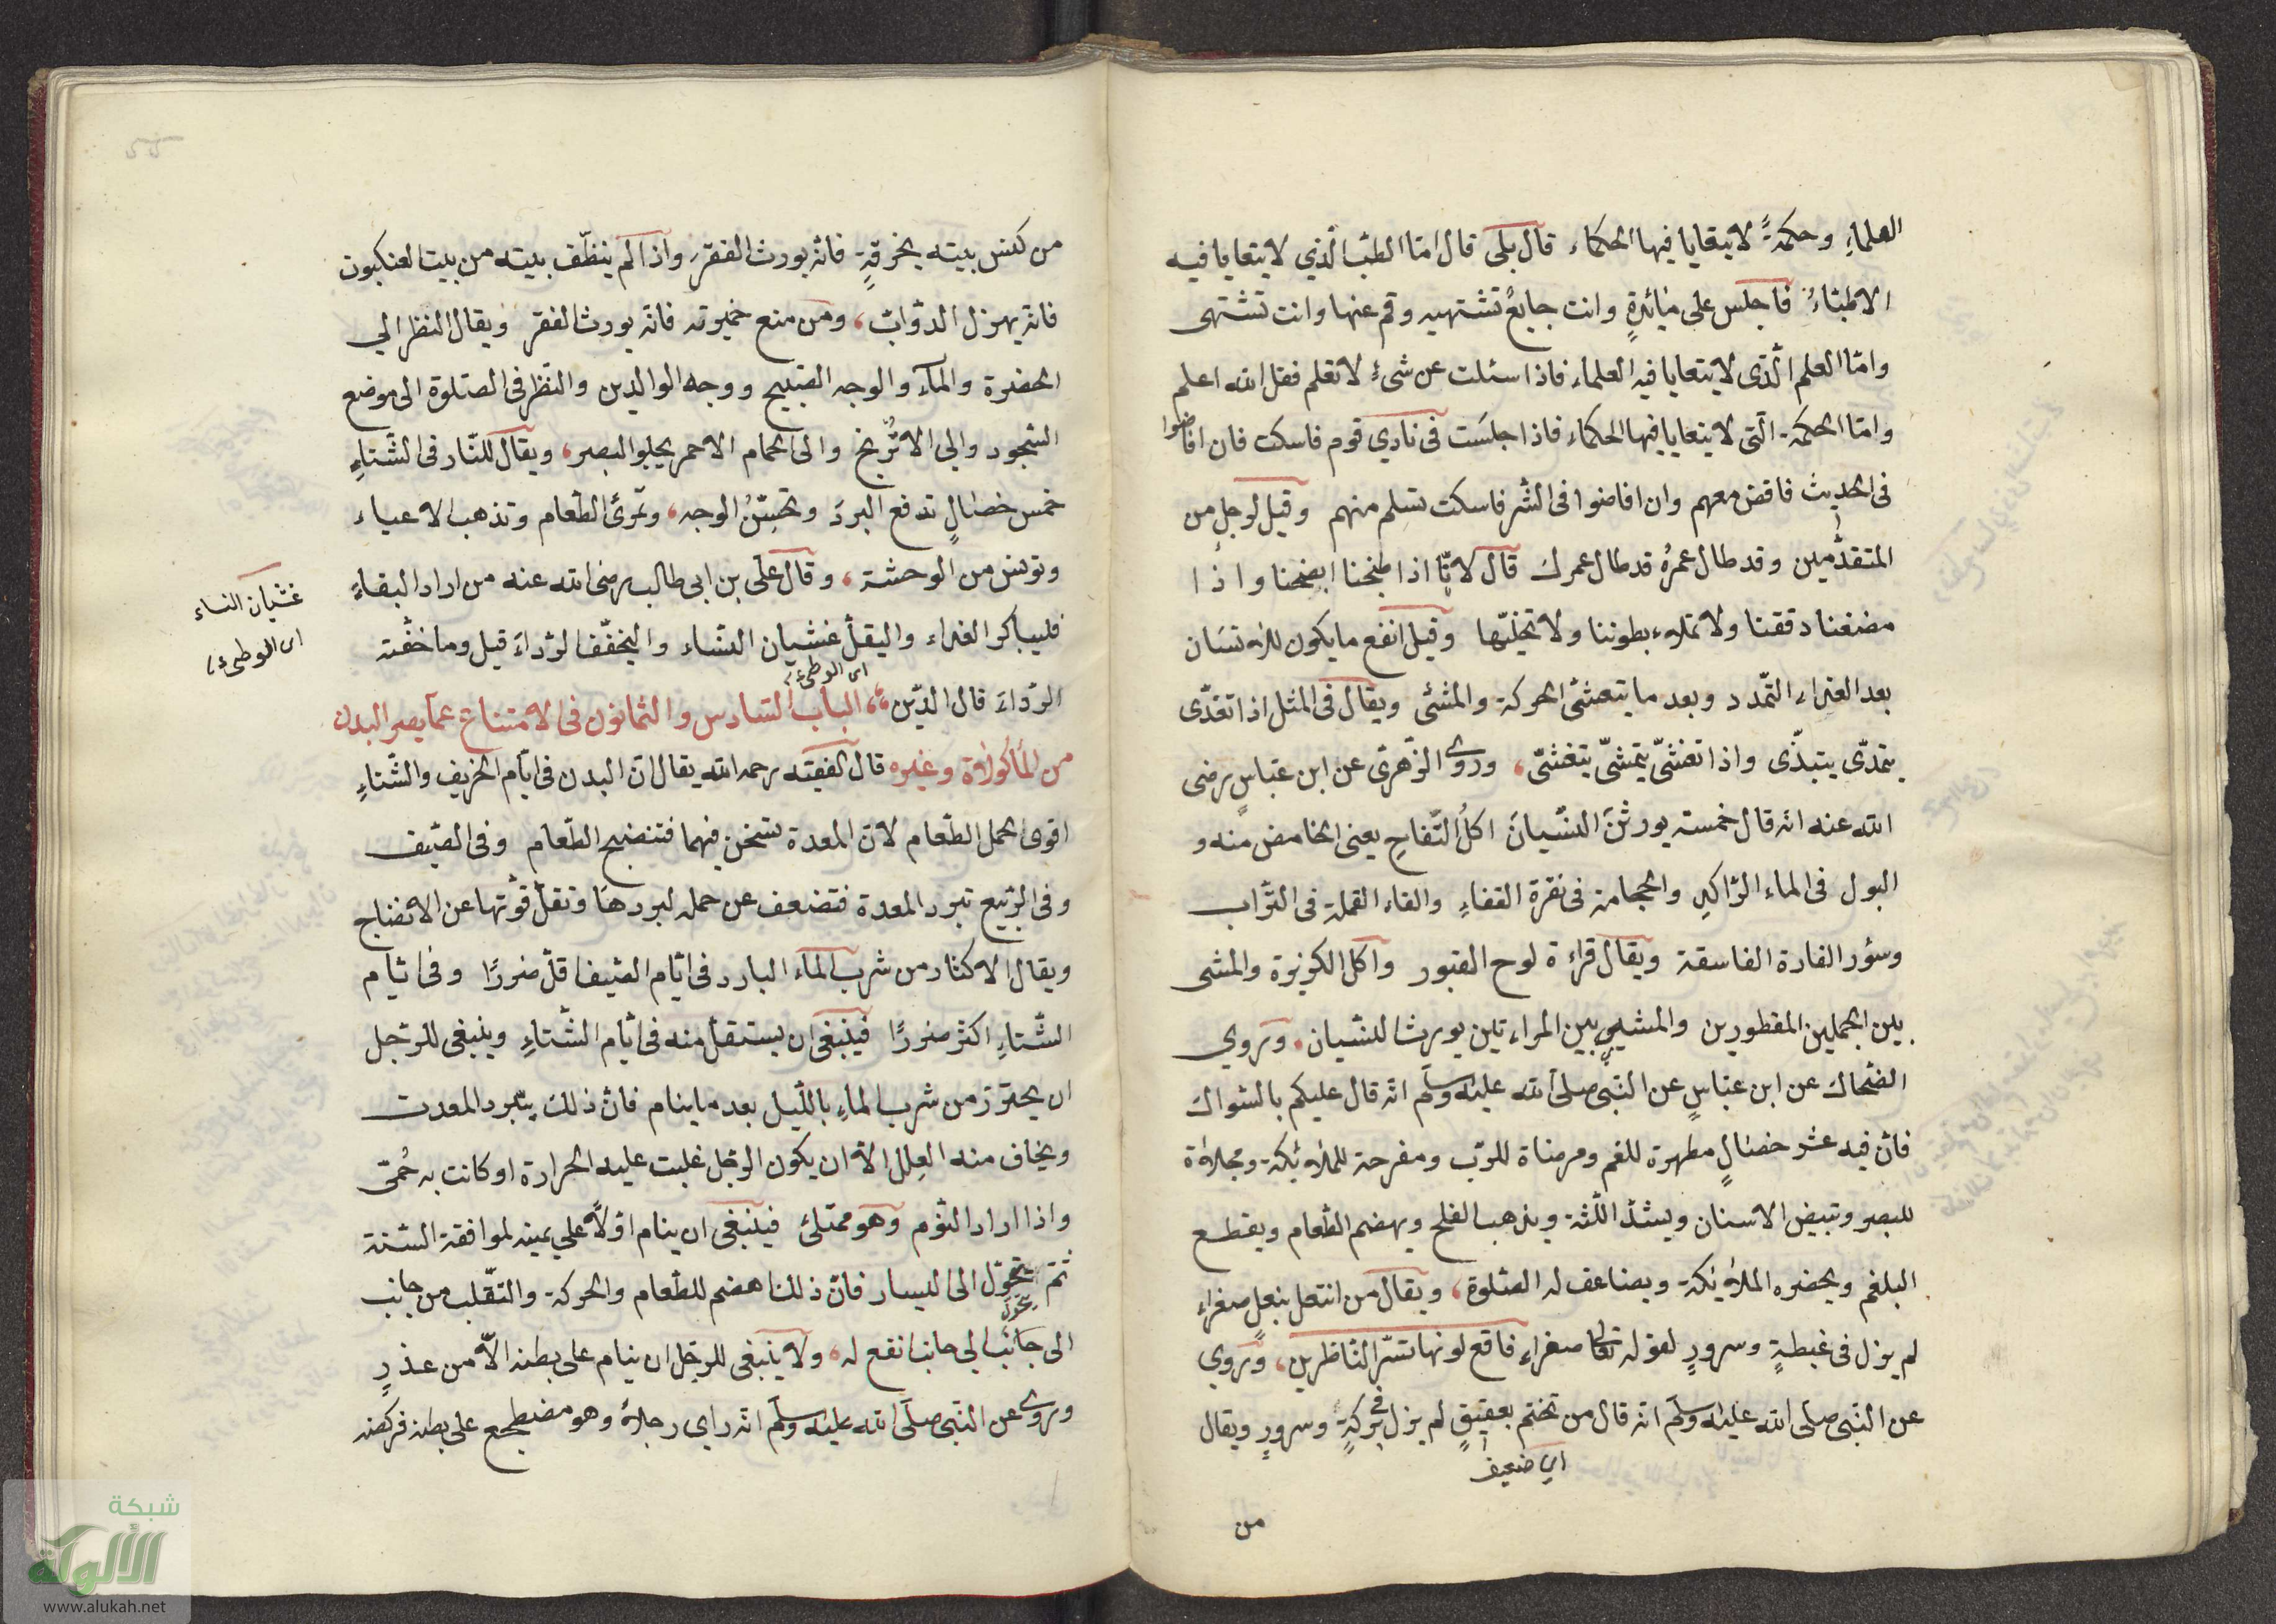 العلماءِ وحكمةً لا يتعايا فيها الحكماء قال بلى قال امّا الطبّ الّذي لا يتعايا فيه
الاطبّاءُ فاجلس على مائدةٍ وانت جايعٌ تشتهيه وقم عنها وانت تشتهى
وامّا العلم الّذى لا يتعايا فيه العلماء فاذا سئلت عن شىءٍ لا تعلم فقل الله اعلم
وامّا الحكمة الّتى لا يتعايا فيها الحكماء فاذا جلست فى نادي قوم فاسكت فان افاضوا
فى الحديث فافض معهم وان افاضوا فى الشّر فاسكت تسلم منهم وقيل لرجلٍ من
المتقدّمين وقد طال عمرُه قد طال عمرك قال لانّا اذا طبخنا انضجنا واذا
مضغنا دققنا ولا نملاء بطوننا ولا نخليّها وقيل انفع ما يكون للانسان
بعد الغداء التمّدد وبعد ما يتعشّى الحركة والمشى ويقال فى المثل اذا تغدّى
يتمدّى يتبدّى واذا تعشّى يتمشّى يتغشّى، وروى الزّهرىّ عن ابن عبّاسٍ رضى
الله عنه انّه قال خمسة يورثنَ النسّيانَ اكلُ التّفاحِ يعنى الحامض منه و
البول فى الماء الرّاكدِ والحجامة فى نقرة القفاءِ والقاء القملة فى التّراب
وسؤر الفارة الفاسقة ويقال قراءة لوح القبور واكل الكوزبرة والمشى
بين الجملين المقطورين والمشي بين المراءتين يورثا للنسّيان، وروي
الضّحاك عن ابن عبّاسٍ عن النّبى صلى الله عليه وسلّم انّه قال عليكم بالسّواك
فانّ فيه عشر خصالٍ مطهرة للفم ومرضاة للرّب ومفرحة للملائكة ومجلاة
للبصر وتبيض الاسنان ويشدّ اللّثة ويذهب الفلح ويهضم الطّعام ويقطع
البلغم ويحضره الملائكة ويضاعف له الصّلوة، ويقال من انتعل بنعلٍ صفراء
لم يزل فى غبطةٍ وسرورٍ لقوله تعالى صفراء فاقع لونها تسرّ النّاظرين، وروي
عن النّبى صلى الله عليه وسلّم انّه قال من تختّم بعقيقٍ لم يزل فى بركةٍ وسرورٍ ويقال
اي ضعيف
من
من كنس بيته بخرقةٍ فانّه يورث الفقر، واذا لم ينظّف بيته من بيت العنكبوت
فانّه يهزل الدوّابّ، ومن منع خميرته فانّه يورث الفقر ويقال النظر الي
الخضرة والماء والوجه القبيح ووجه الوالدين والنّظر فى الصّلوة الى موضع
السّجود والي الاترّنج والى الحمام الاحمر يجلو البصر، ويقال للنّار فى الشّتاءِ
خمس خصالٍ تدفع البردَ وتحسّنُ الوجه، وتمرئ الطّعام وتذهب الاعياء
وتونس من الوحشة، وقال علّى بن ابى طالب رضى الله عنه من اراد البقاءَ
غشيان النساء
اى الوطىء
فليباكر الغداء واليقلّ غشيان النّساء واليخفّف الرّداءَ قيل وما خفّة
اى الوطىء
الرّداءَ قال الدّين، الباب السّادس والثمانون فى الامتناع عمّا يضر البدن
من المأكولاة وغيره قال الفقيه رحمه الله يقال انّ البدن فى ايّام الخريف والشّتاءِ
اقوى لحمل الطّعام لانّ المعدة تسخن فيهما فتنضج الطّعام وفى الصّيف
وفى الرّبيع تبرد المعدة فتضعف عن حمله لبردها وتقلّ قوّتها عن الانضاج
ويقال الاكثار من شرب الماء البارد فى ايّام الصّيف اقلّ ضررًا وفى ايّام
الشّتاءِ اكثر ضررًا فينبغى ان يستقلّ منه فى ايّام الشّتاءِ وينبغى للرّجل
ان يحترز من شرب الماءِ باللّيل بعد ما ينام فانّ ذلك يبّرد المعدت
ويخاف منه العِلل الاّ ان يكون الرّجل غلبت عليه الحرارة او كانت به حُمّى
واذا اراد النّوم وهو ممتلئ فينبغى ان ينام اوّلاً علي يمينه لموافقة السّنة
ثمّ يتحوّل الى اليسار فانّ ذلك اهضم للطّعام والحركة والتقّلب من جانب
يتحول
الى جانب الي جانب انفع له، ولا ينبغى للرجل ان ينام على بطنه الاّ من عذرٍ
وروى عن النّبى صلّى الله عليه وسلّم انّه راي رجلاً وهو مضطجع على بطنه فركضه
شبكة
الألوكة
www.alukah.net